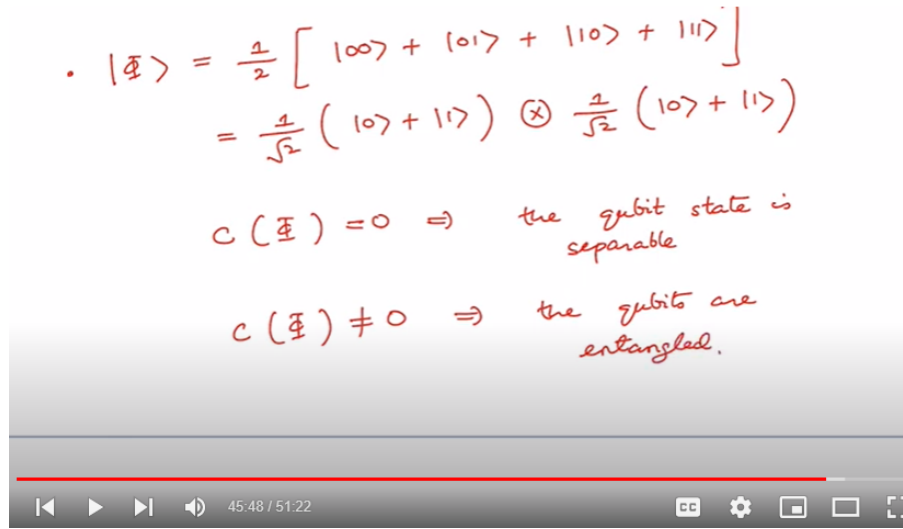 • |Φ⟩ = 1/2 [ |00⟩ + |01⟩ + |10⟩ + |11⟩ ]
= 1/√2 ( |0⟩ + |1⟩ ) ⊗ 1/√2 ( |0⟩ + |1⟩ )
c ( Φ ) = 0 ⇒ the qubit state is
separable
c ( Φ ) ≠ 0 ⇒ the qubits are
entangled.
45:48 / 51:22
CC